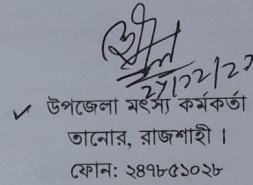 ✓ উপজেলা মৎস্য কর্মকর্তা
তানোর, রাজশাহী ।
ফোন: ২৪৭৮৫১০২৮